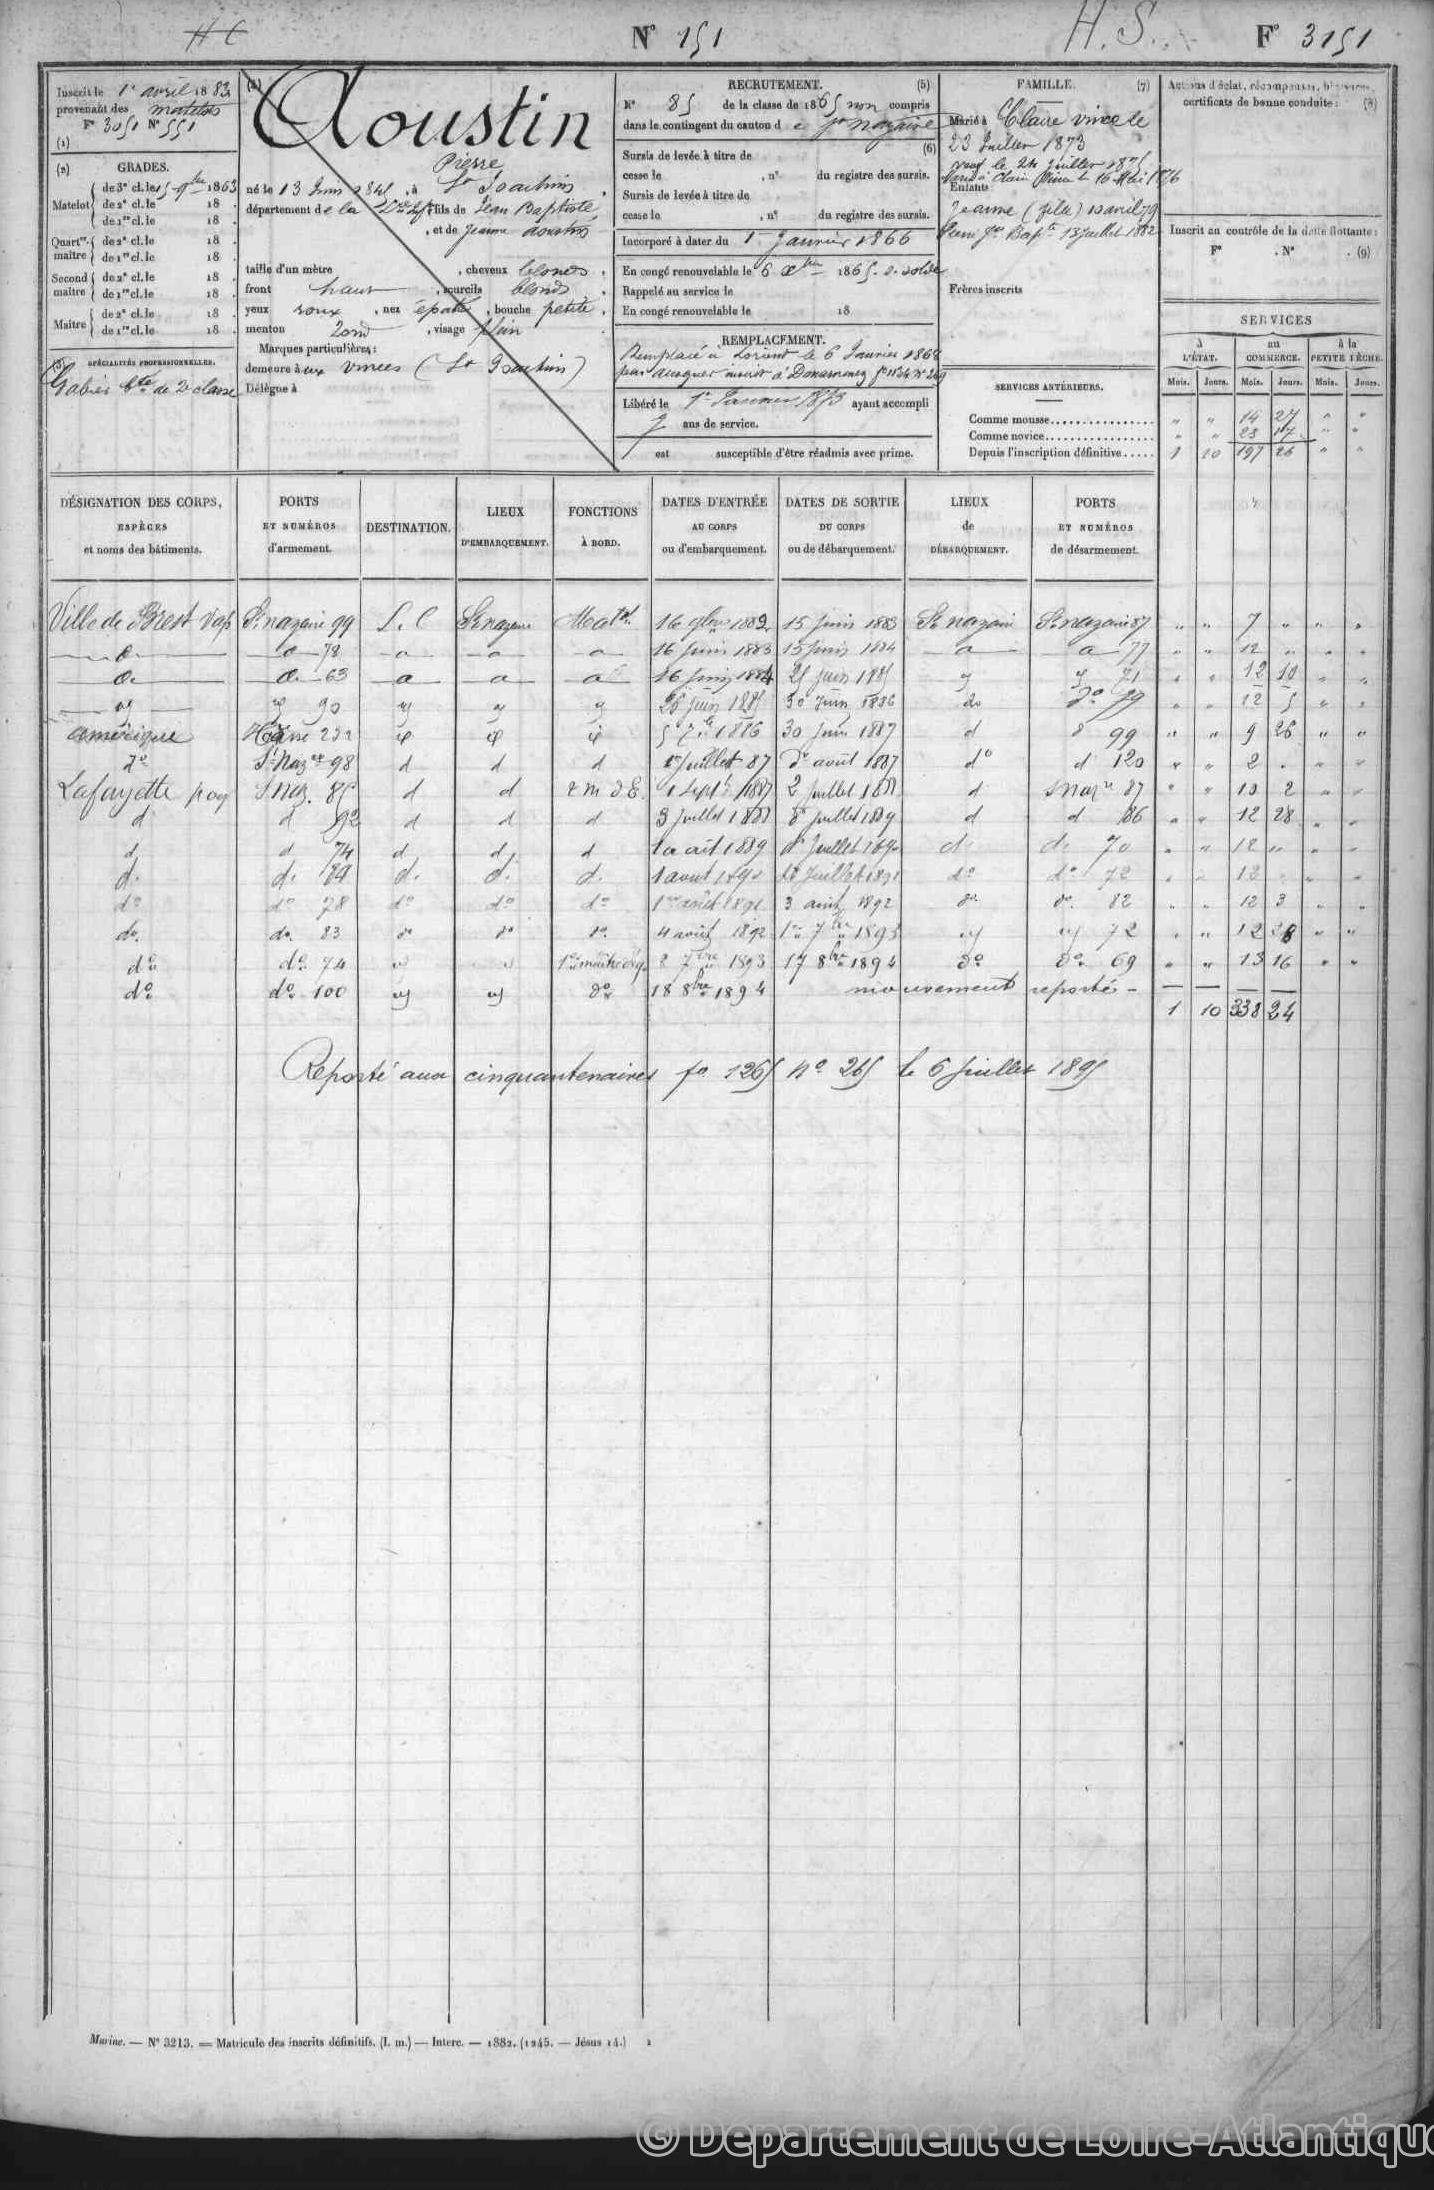 N° 151
H. S.
F° 3151
Inscrit le 1er avril 1883
provenant des matelots
F° 3051 N° 551
(1)
(2) GRADES.
Matelot de 3e cl. le 1863
de 2e cl. le 18 .
de 1re cl. le 18 .
Quartr-maître de 2e cl. le 18 .
de 1re cl. le 18 .
Second maître de 2e cl. le 18 .
de 1re cl. le 18 .
Maître de 2e cl. le 18 .
de 1re cl. le 18 .
(3) SPÉCIALITÉS PROFESSIONNELLES.
Gabier de 2e classe
(4)
Aoustin
Pierre
né le 13 Juin 1845, à St Joachim
département de la fils de Jean Baptiste
, et de Jeanne Aoustin
taille d'un mètre , cheveux blonds
front haut , sourcils blonds
yeux roux , nez épaté , bouche petite
menton rond , visage plein
Marques particulières :
demeure à aux vinces (St Joachim)
Délègue à
RECRUTEMENT. (5)
N° 85 de la classe de 1865 non compris
dans le contingent du canton d e St Nazaire
(6)
Sursis de levée à titre de
cesse le , n° du registre des sursis.
Sursis de levée à titre de
cesse le , n° du registre des sursis.
Incorporé à dater du 1er Janvier 1866
En congé renouvelable le 6 Xbre 1865 s. solde
Rappelé au service le
En congé renouvelable le 18
REMPLACEMENT.
Remplacé à Lorient le 6 Janvier 1868
par inscrit à Douarnenez
Libéré le 1er Janvier 1873 ayant accompli
7 ans de service.
est susceptible d'être réadmis avec prime.
FAMILLE. (7)
Marié à Claire vince le
23 Juillet 1873
veuf le 24 Juillet 1875
Marié à Claire Vince le 16 Mai 1876
Enfants
Jeanne (fille) 10 avril 79
Pierre Jn Bapte 13 juillet 1882
Frères inscrits
SERVICES ANTÉRIEURS.
Comme mousse " " 14 27 " "
Comme novice " " 23 17 " "
Depuis l'inscription définitive 1 10 197 26 " "
Actions d'éclat, récompenses, blessures,
certificats de bonne conduite : (8)
Inscrit au contrôle de la dette flottante :
F° . N° . (9)
SERVICES
à L'ÉTAT. au COMMERCE. à la PETITE PÊCHE.
Mois. Jours. Mois. Jours. Mois. Jours.
DÉSIGNATION DES CORPS, ESPÈCES et noms des bâtiments.
PORTS ET NUMÉROS d'armement.
DESTINATION.
LIEUX D'EMBARQUEMENT.
FONCTIONS À BORD.
DATES D'ENTRÉE AU CORPS ou d'embarquement.
DATES DE SORTIE DU CORPS ou de débarquement.
LIEUX de DÉBARQUEMENT.
PORTS ET NUMÉROS de désarmement.
Ville de Brest Vap St nazaire 99 L. C St nazaire Matel 16 9bre 1882 15 Juin 1883 St nazaire St nazaire 87 " " 7 " " "
d° d° 78 d° d° d° 16 Juin 1883 15 Juin 1884 d° d° 77 " " 12 " " "
d° d° 63 d° d° d° 16 Juin 1884 25 juin 1885 d° d° 71 " " 12 10 " "
d° d° 90 d° d° d° 26 juin 1885 30 Juin 1886 d° d° 79 " " 12 5 " "
Amérique Havre 232 d° d° d° 5 7bre 1886 30 Juin 1887 d d° 99 " " 9 26 " "
d° St Naz re 98 d d d 1er Juillet 87 août 1887 d° d° 120 " " 2 " " "
Lafayette paq S Naz. 85 d d 1 Sept 1887 2 Juillet 1888 d S Naz re 87 " " 10 2 " "
d° d 92 d d d 3 Juillet 1888 Juillet 1889 d d 86 " " 12 28 " "
d d 74 d d d 1 août 1889 Juillet 1890 d° d° 70 " " 12 " " "
d° d° 89 d° d° d° 1 août 1890 Juillet 1891 d° d° 72 " " 12 " " "
d° d° 78 d° d° d° 1er août 1891 3 août 1892 d° d° 82 " " 12 3 " "
d° d° 83 d° d° d° 4 août 1892 1er 7bre 1893 d° d° 72 " " 12 28 " "
d° d° 74 d° d° 1er maître éq. 2 7bre 1893 17 8bre 1894 d° d° 69 " " 13 16 " "
d° d° 100 d° d° d° 18 8bre 1894 mouvements reportés -
1 10 338 24
Reporté aux cinquantenaires fo 1265 N° 265 le 6 juillet 1895
Marine. — N° 3213. — Matricule des inscrits définitifs. (I. m.) — Interc. — 1882. (1245. — Jésus 14.) 2
© Département de Loire-Atlantique